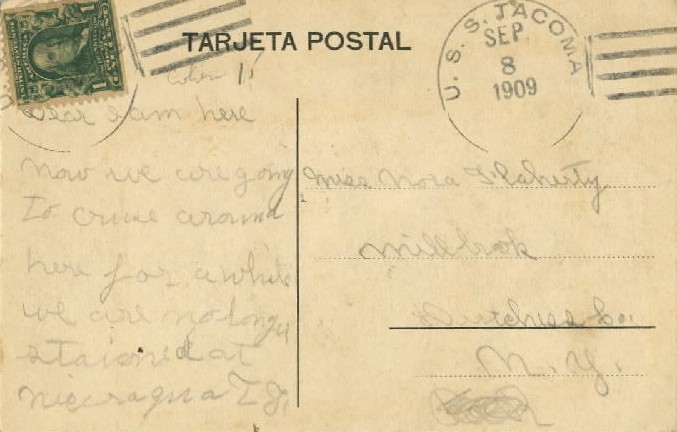 TARJETA POSTAL
U. S. S. TACOMA
SEP
8
1909
Dear I am here
now we are going
to cruise around
here for a while
we are no longer
staioned at
Nicaragua T. J.
Miss Nora Flaherty
Millbrok
Dutchess Co.
N. Y.